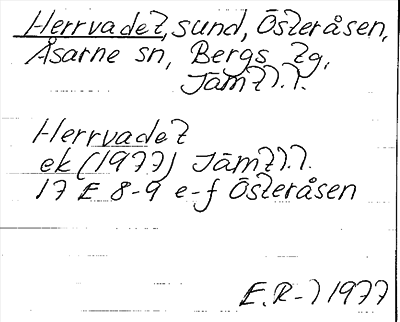 Herrvadet, sund, Österåsen,
Åsarne sn, Bergs tg,
Jämtl.l.
Herrvadet
ek (1977) Jämtl.l.
17 E 8-9 e-f Österåsen
E.R-l 1977